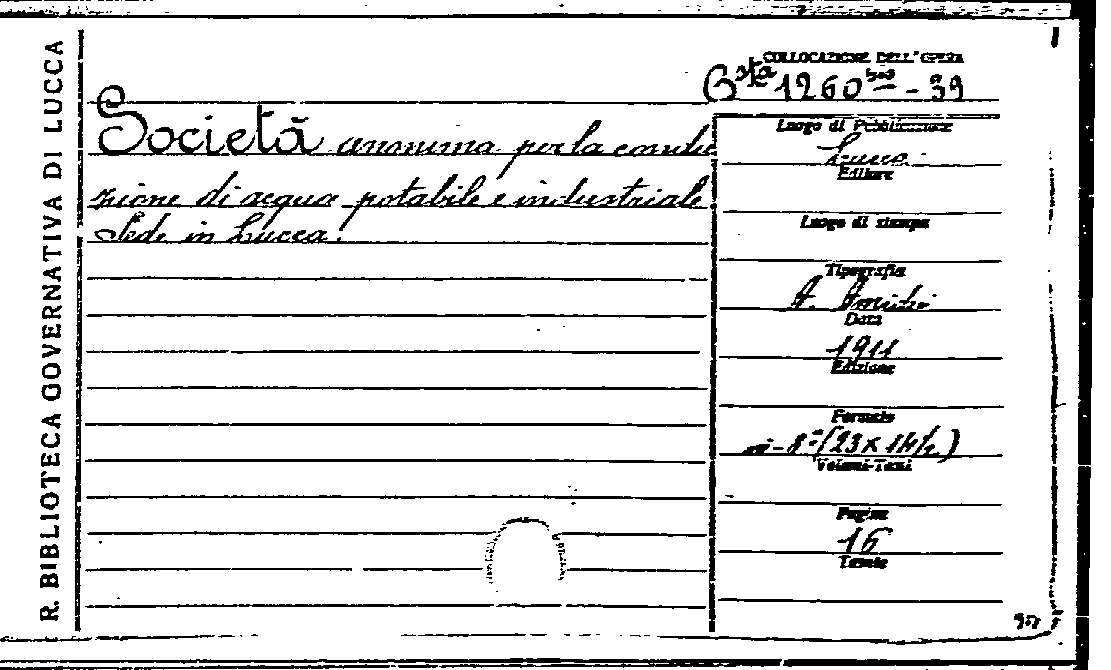 R. BIBLIOTECA GOVERNATIVA DI LUCCA
COLLOCAZIONE DELL'OPERA
Bsta 1260 bis - 39
Società anonima per la condu
zione di acqua potabile e industriale
Sede in Lucca.
Luogo di Pubblicazione
Lucca
Editore
Luogo di stampa
Tipografia
A. Amedei
Data
1911
Edizione
Formato
in-8° (23 x 14½)
Volumi-Tomi
Pagine
16
Tavole